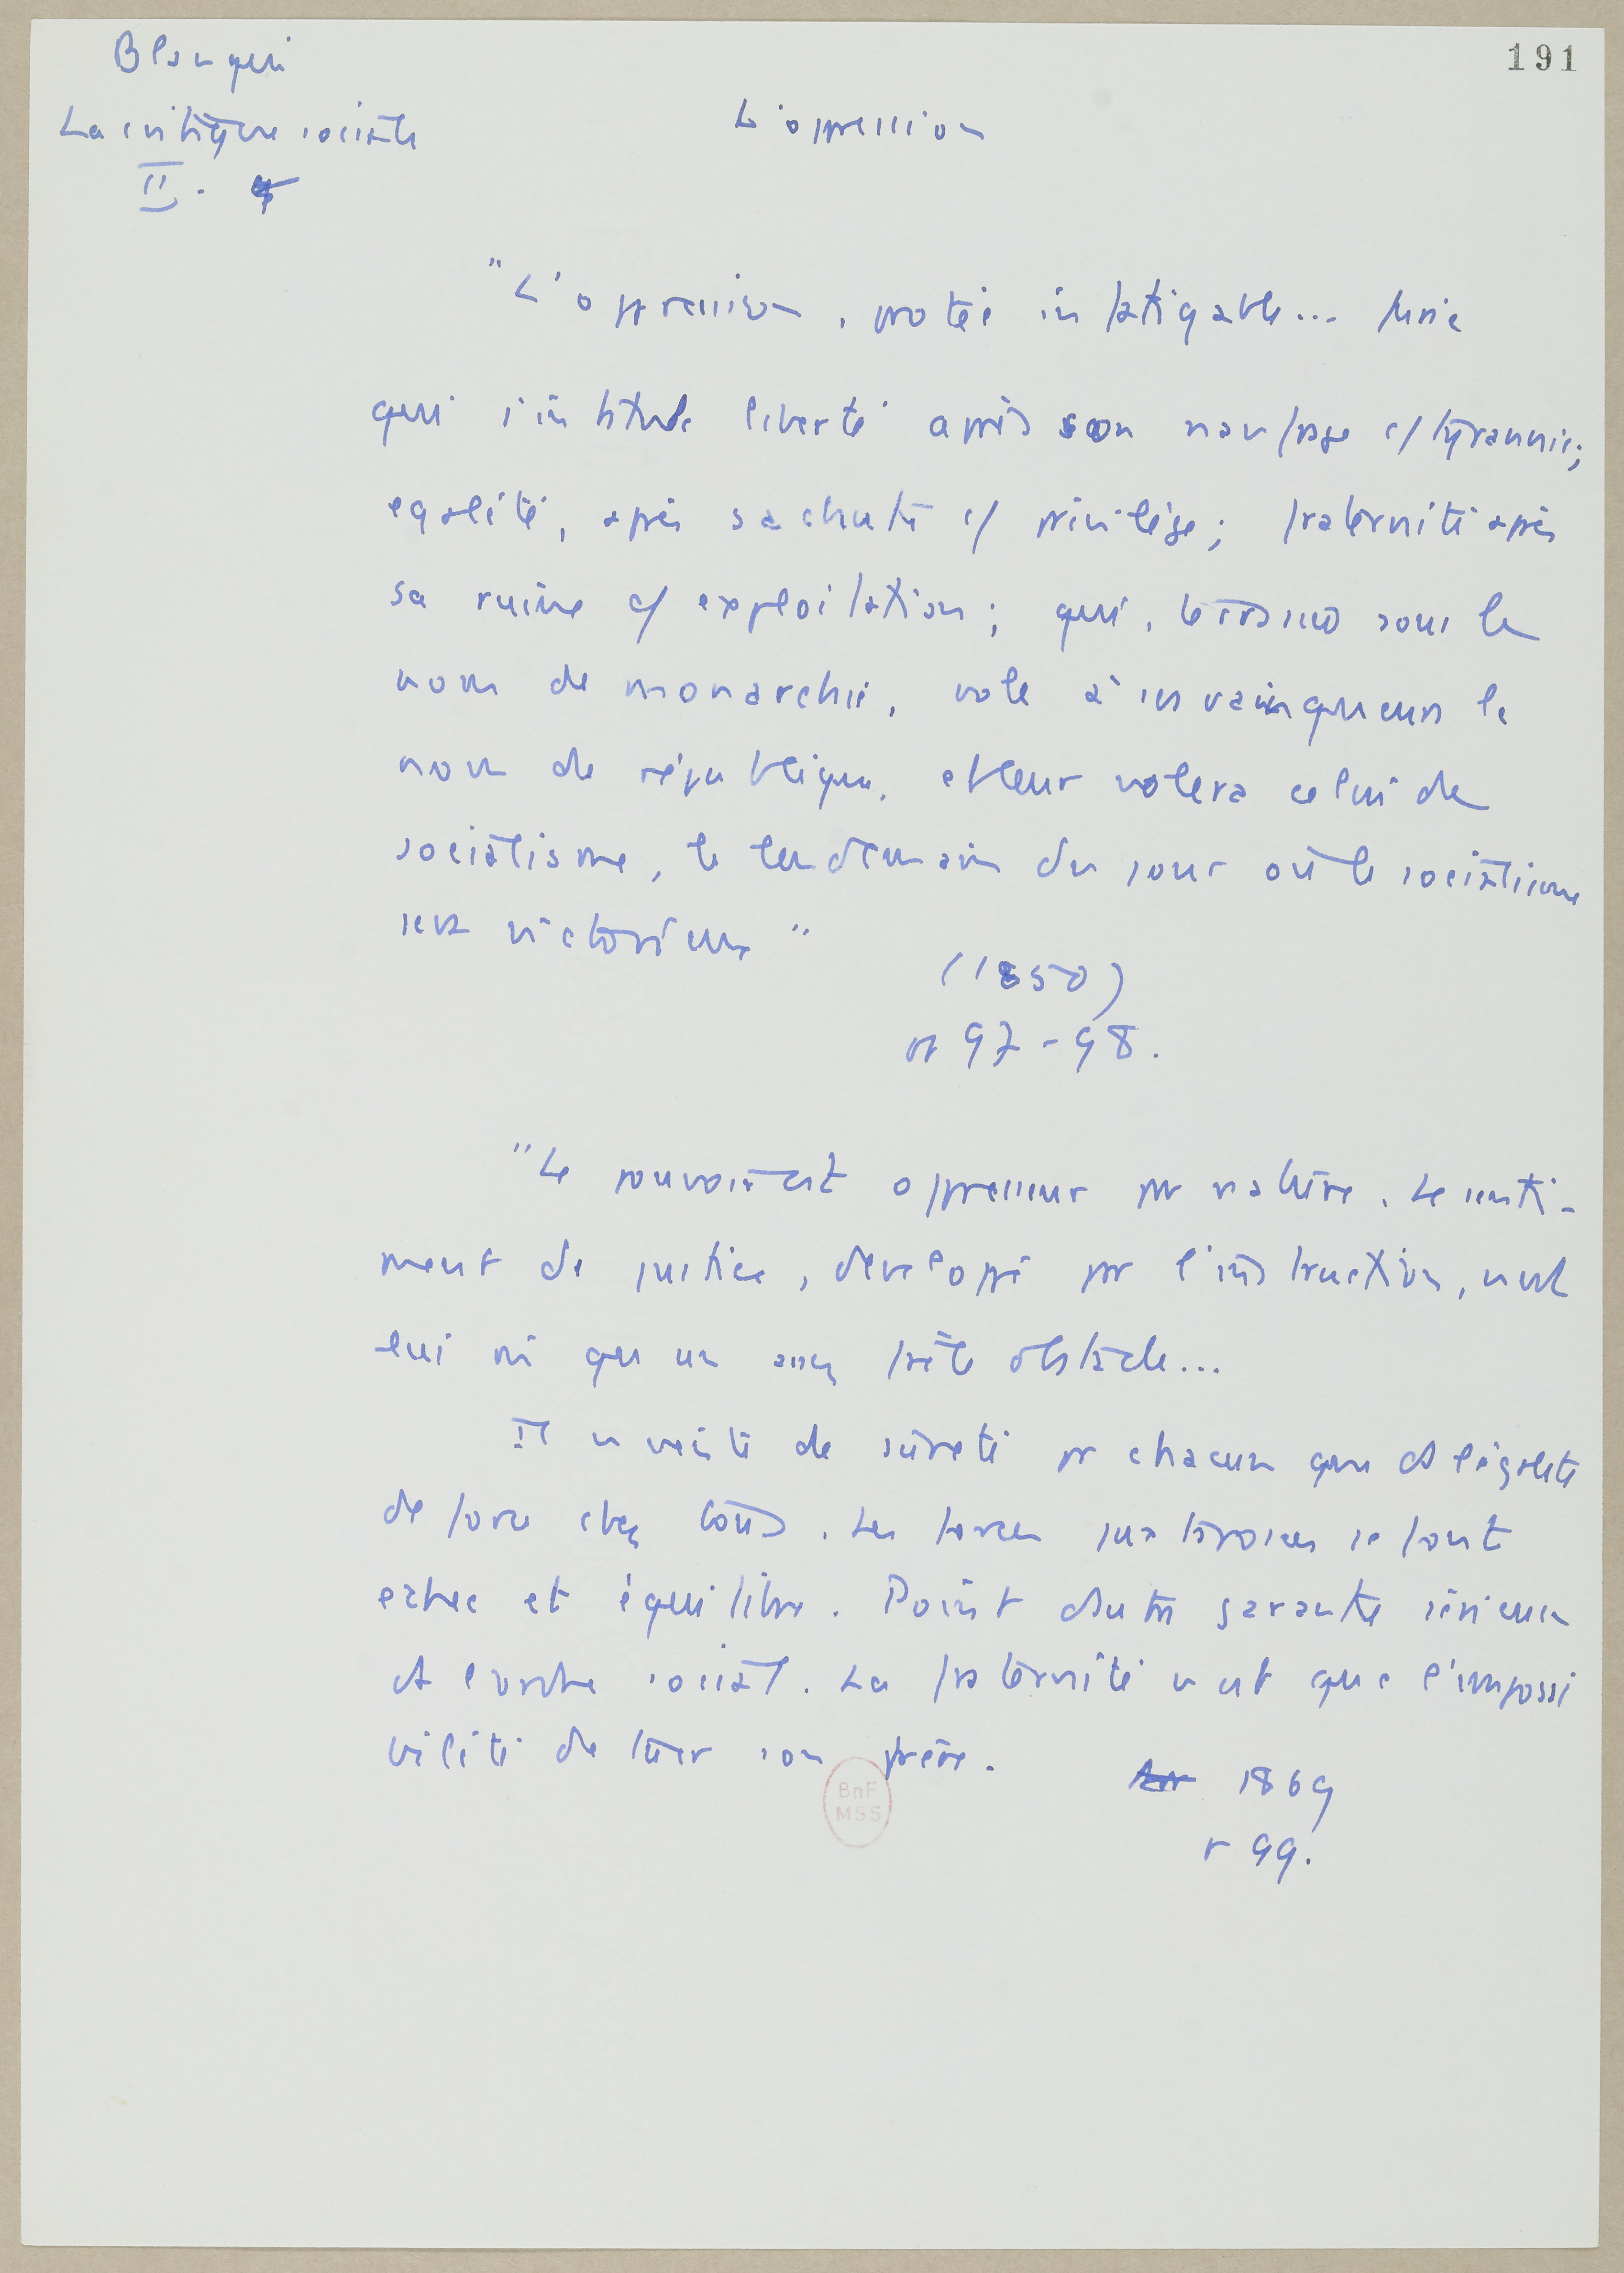 191
Blanqui
La critique sociale
II.
L'oppression
"L'oppression, protée infatigable... furie
qui s'intitule liberté après son naufrage c/ tyrannie;
egalité, après sa chute c/ privilège; fraternité après
sa ruine c/ exploitation; qui, terrassée sous le
nom de monarchie, vole à ses vainqueurs le
nom de république, et leur volera celui de
socialisme, le lendemain du jour où le socialisme
sera victorieux"
(1850)
p 97-98.
"Le pouvoir est oppresseur par nature. Le senti-
ment de justice, developpé par l'instruction, n'est
lui même qu'un assez frêle obstacle...
Il n'existe de sûreté pr chacun que ds l'égalité
de force chez tous. Les forces se font
echec et équilibre. Point d'autre garantie sérieuse
ds l'ordre social. La fraternité n'est que l'impossi
bilité de tuer son frère.
1869
p 99.
BnF
MSS